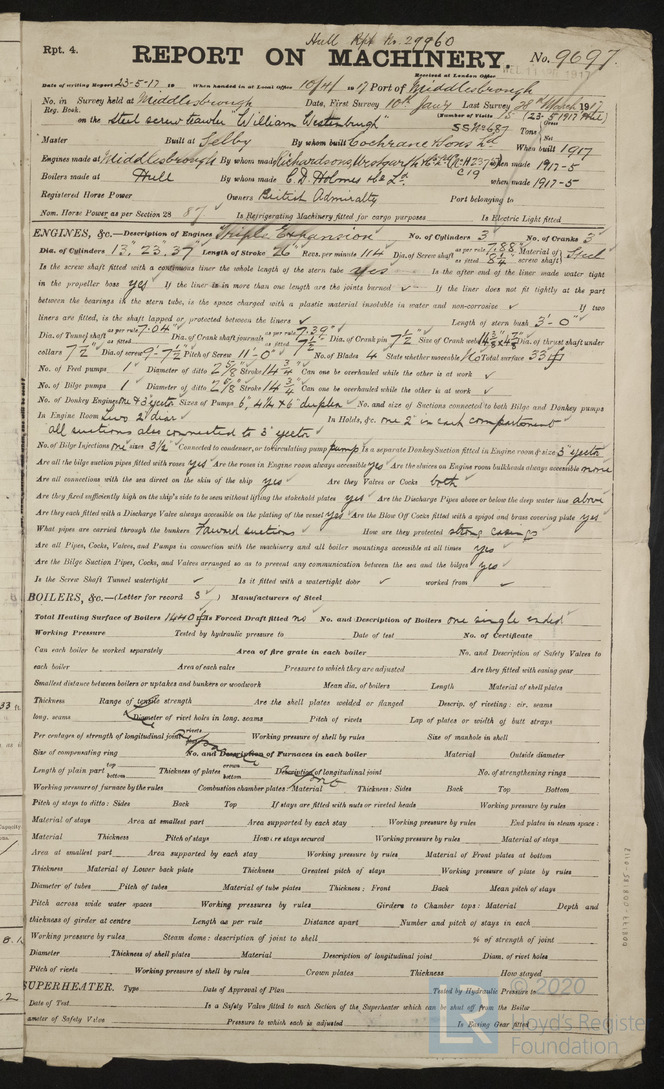 Hull Rpt. No. 29960
Rpt. 4.
REPORT ON MACHINERY.
No. 9697
Received at London Office
Date of writing Report 23-5-17 19 When handed in at Local Office 10/4/ 1917 Port of Middlesbrough
No. in Survey held at Middlesbrough Date, First Survey 10th Jany Last Survey 28th March 1917
Reg. Book. (Number of Visits 15 (23.5.1917
on the Steel screw trawler "William Westenburgh" SSN°687 Tons Gross Net
Master Built at Selby By whom built Cochrane & Sons Ld When built 1917
Engines made at Middlesbrough By whom made Richardsons Westgarth & Co Ld when made 1917-5
Boilers made at Hull By whom made C.D. Holmes & Co Ld. when made 1917-5
Registered Horse Power Owners British Admiralty Port belonging to
Nom. Horse Power as per Section 28 87 Is Refrigerating Machinery fitted for cargo purposes Is Electric Light fitted
ENGINES, &c.—Description of Engines Triple Expansion No. of Cylinders 3 No. of Cranks 3
Dia. of Cylinders 13", 23", 37" Length of Stroke 26" Revs. per minute 114 Dia. of Screw shaft as per rule 7.88 as fitted 8¼" Material of screw shaft Steel
Is the screw shaft fitted with a continuous liner the whole length of the stern tube yes Is the after end of the liner made water tight
in the propeller boss yes If the liner is in more than one length are the joints burned ✓ If the liner does not fit tightly at the part
between the bearings in the stern tube, is the space charged with a plastic material insoluble in water and non-corrosive ✓ If two
liners are fitted, is the shaft lapped or protected between the liners ✓ Length of stern bush 3'-0"
Dia. of Tunnel shaft as per rule 7.04" as fitted Dia. of Crank shaft journals as per rule 7.39" as fitted 7½" Dia. of Crank pin 7½" Size of Crank webs 14⅜"x4⅞" Dia. of thrust shaft under
collars 7½" Dia. of screw 9'-7½" Pitch of Screw 11'-0" No. of Blades 4 State whether moveable No Total surface 33
No. of Feed pumps 1 Diameter of ditto 2⅝" Stroke 14¾" Can one be overhauled while the other is at work ✓
No. of Bilge pumps 1 Diameter of ditto 2⅝" Stroke 14¾" Can one be overhauled while the other is at work ✓
No. of Donkey Engines one & 3" ejector Sizes of Pumps 6", 4¼" x 6" duplex No. and size of Suctions connected to both Bilge and Donkey pumps
In Engine Room two 2" diar In Holds, &c. one 2" in each compartment
all suctions also connected to 3" ejector
No. of Bilge Injections one sizes 3½" Connected to condenser, or to circulating pump pump Is a separate Donkey Suction fitted in Engine room & size 3" ejector
Are all the bilge suction pipes fitted with roses yes Are the roses in Engine room always accessible yes Are the sluices on Engine room bulkheads always accessible none
Are all connections with the sea direct on the skin of the ship yes Are they Valves or Cocks both
Are they fixed sufficiently high on the ship's side to be seen without lifting the stokehold plates yes Are the Discharge Pipes above or below the deep water line above
Are they each fitted with a Discharge Valve always accessible on the plating of the vessel yes Are the Blow Off Cocks fitted with a spigot and brass covering plate yes
What pipes are carried through the bunkers Forward suctions How are they protected strong casings
Are all Pipes, Cocks, Valves, and Pumps in connection with the machinery and all boiler mountings accessible at all times yes
Are the Bilge Suction Pipes, Cocks, and Valves arranged so as to prevent any communication between the sea and the bilges yes
Is the Screw Shaft Tunnel watertight ✓ Is it fitted with a watertight door ✓ worked from ✓
BOILERS, &c.—(Letter for record S) Manufacturers of Steel
Total Heating Surface of Boilers 1440 Is Forced Draft fitted no No. and Description of Boilers one single ended
Working Pressure Tested by hydraulic pressure to Date of test No. of Certificate
Can each boiler be worked separately Area of fire grate in each boiler No. and Description of Safety Valves to
each boiler Area of each valve Pressure to which they are adjusted Are they fitted with easing gear
Smallest distance between boilers or uptakes and bunkers or woodwork Mean dia. of boilers Length Material of shell plates
Thickness Range of tensile strength Are the shell plates welded or flanged Descrip. of riveting: cir. seams
long. seams Diameter of rivet holes in long. seams Pitch of rivets Lap of plates or width of butt straps
Per centages of strength of longitudinal joint rivets Working pressure of shell by rules Size of manhole in shell
Size of compensating ring No. and Description of Furnaces in each boiler Material Outside diameter
Length of plain part top bottom Thickness of plates crown bottom Description of longitudinal joint No. of strengthening rings
Working pressure of furnace by the rules Combustion chamber plates: Material Thickness: Sides Back Top Bottom
Pitch of stays to ditto: Sides Back Top If stays are fitted with nuts or riveted heads Working pressure by rules
Material of stays Area at smallest part Area supported by each stay Working pressure by rules End plates in steam space:
Material Thickness Pitch of stays How are stays secured Working pressure by rules Material of stays
Area at smallest part Area supported by each stay Working pressure by rules Material of Front plates at bottom
Thickness Material of Lower back plate Thickness Greatest pitch of stays Working pressure of plate by rules
Diameter of tubes Pitch of tubes Material of tube plates Thickness: Front Back Mean pitch of stays
Pitch across wide water spaces Working pressures by rules Girders to Chamber tops: Material Depth and
thickness of girder at centre Length as per rule Distance apart Number and pitch of stays in each
Working pressure by rules Steam dome: description of joint to shell % of strength of joint
Diameter Thickness of shell plates Material Description of longitudinal joint Diam. of rivet holes
Pitch of rivets Working pressure of shell by rules Crown plates Thickness How stayed
SUPERHEATER. Type Date of Approval of Plan Tested by Hydraulic Pressure to
Date of Test Is a Safety Valve fitted to each Section of the Superheater which can be shut off from the Boiler
Diameter of Safety Valve Pressure to which each is adjusted Is Easing Gear fitted
© 2020
Lloyd's Register
Foundation